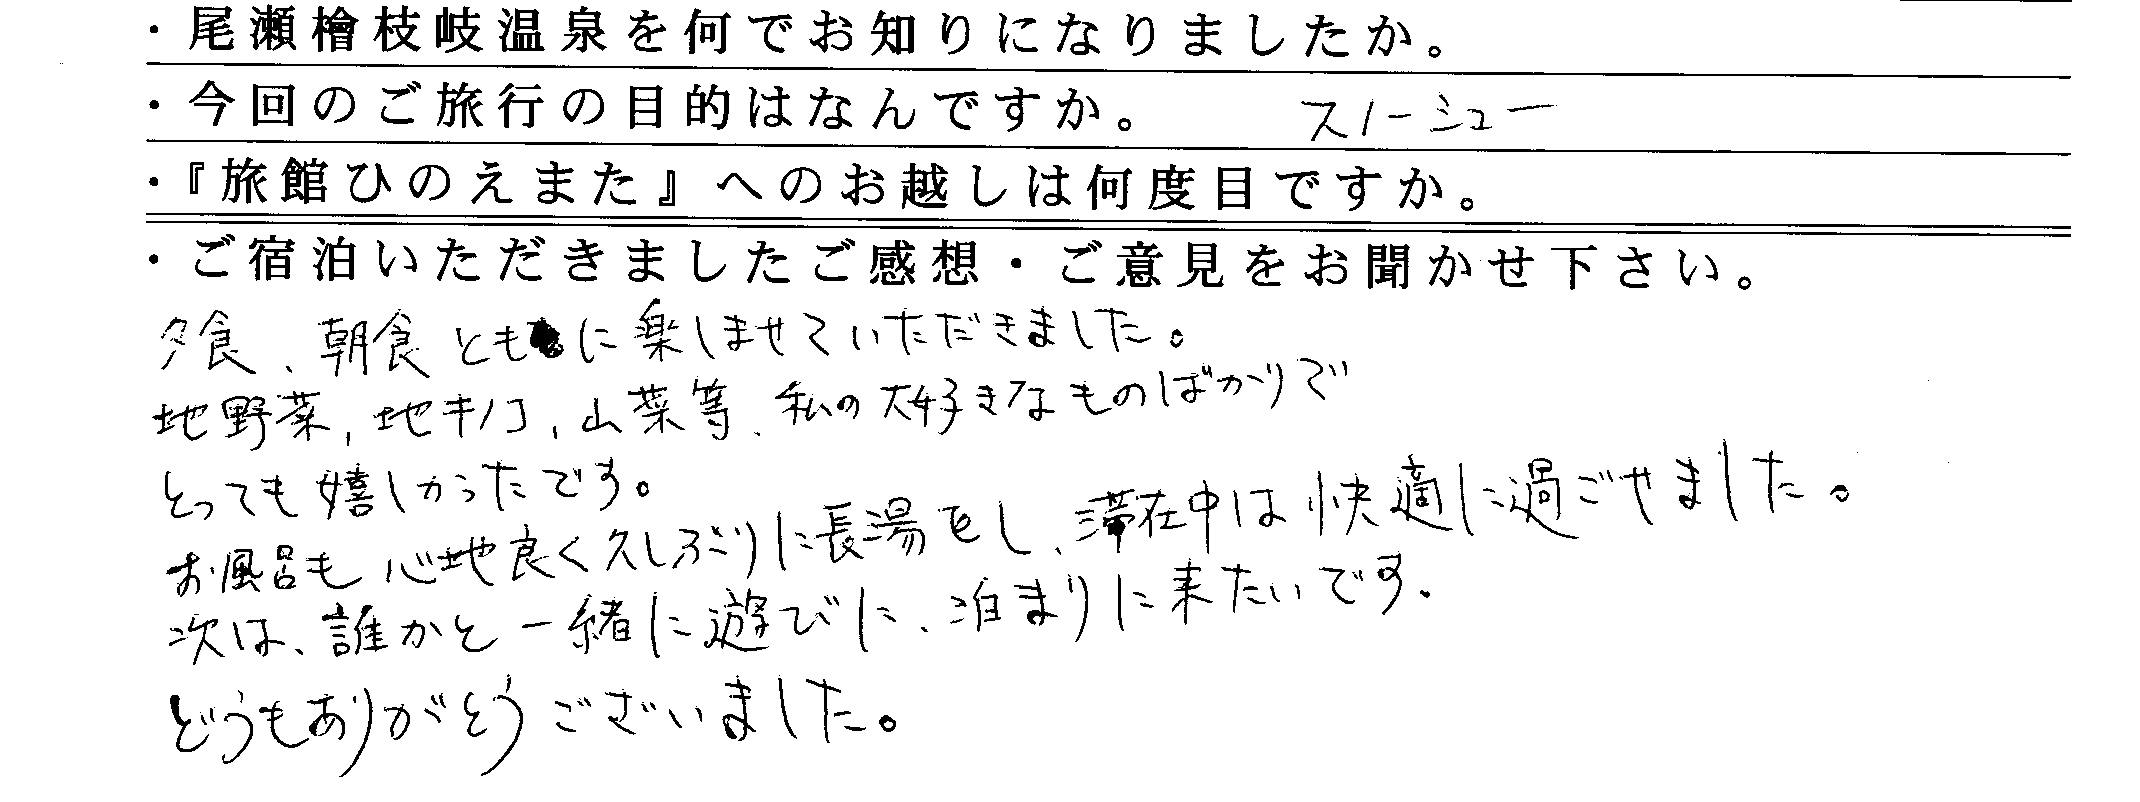 ・尾瀬檜枝岐温泉を何でお知りになりましたか。
・今回のご旅行の目的はなんですか。 スノーシュー
・『旅館ひのえまた』へのお越しは何度目ですか。
・ご宿泊いただきましたご感想・ご意見をお聞かせ下さい。
夕食、朝食ともに楽しませていただきました。
地野菜,地キノコ,山菜等、私の大好きなものばかりで
とっても嬉しかったです。
お風呂も心地良く久しぶりに長湯をし、滞在中は快適に過ごせました。
次は、誰かと一緒に遊びに、泊まりに来たいです.
どうもありがとうございました。